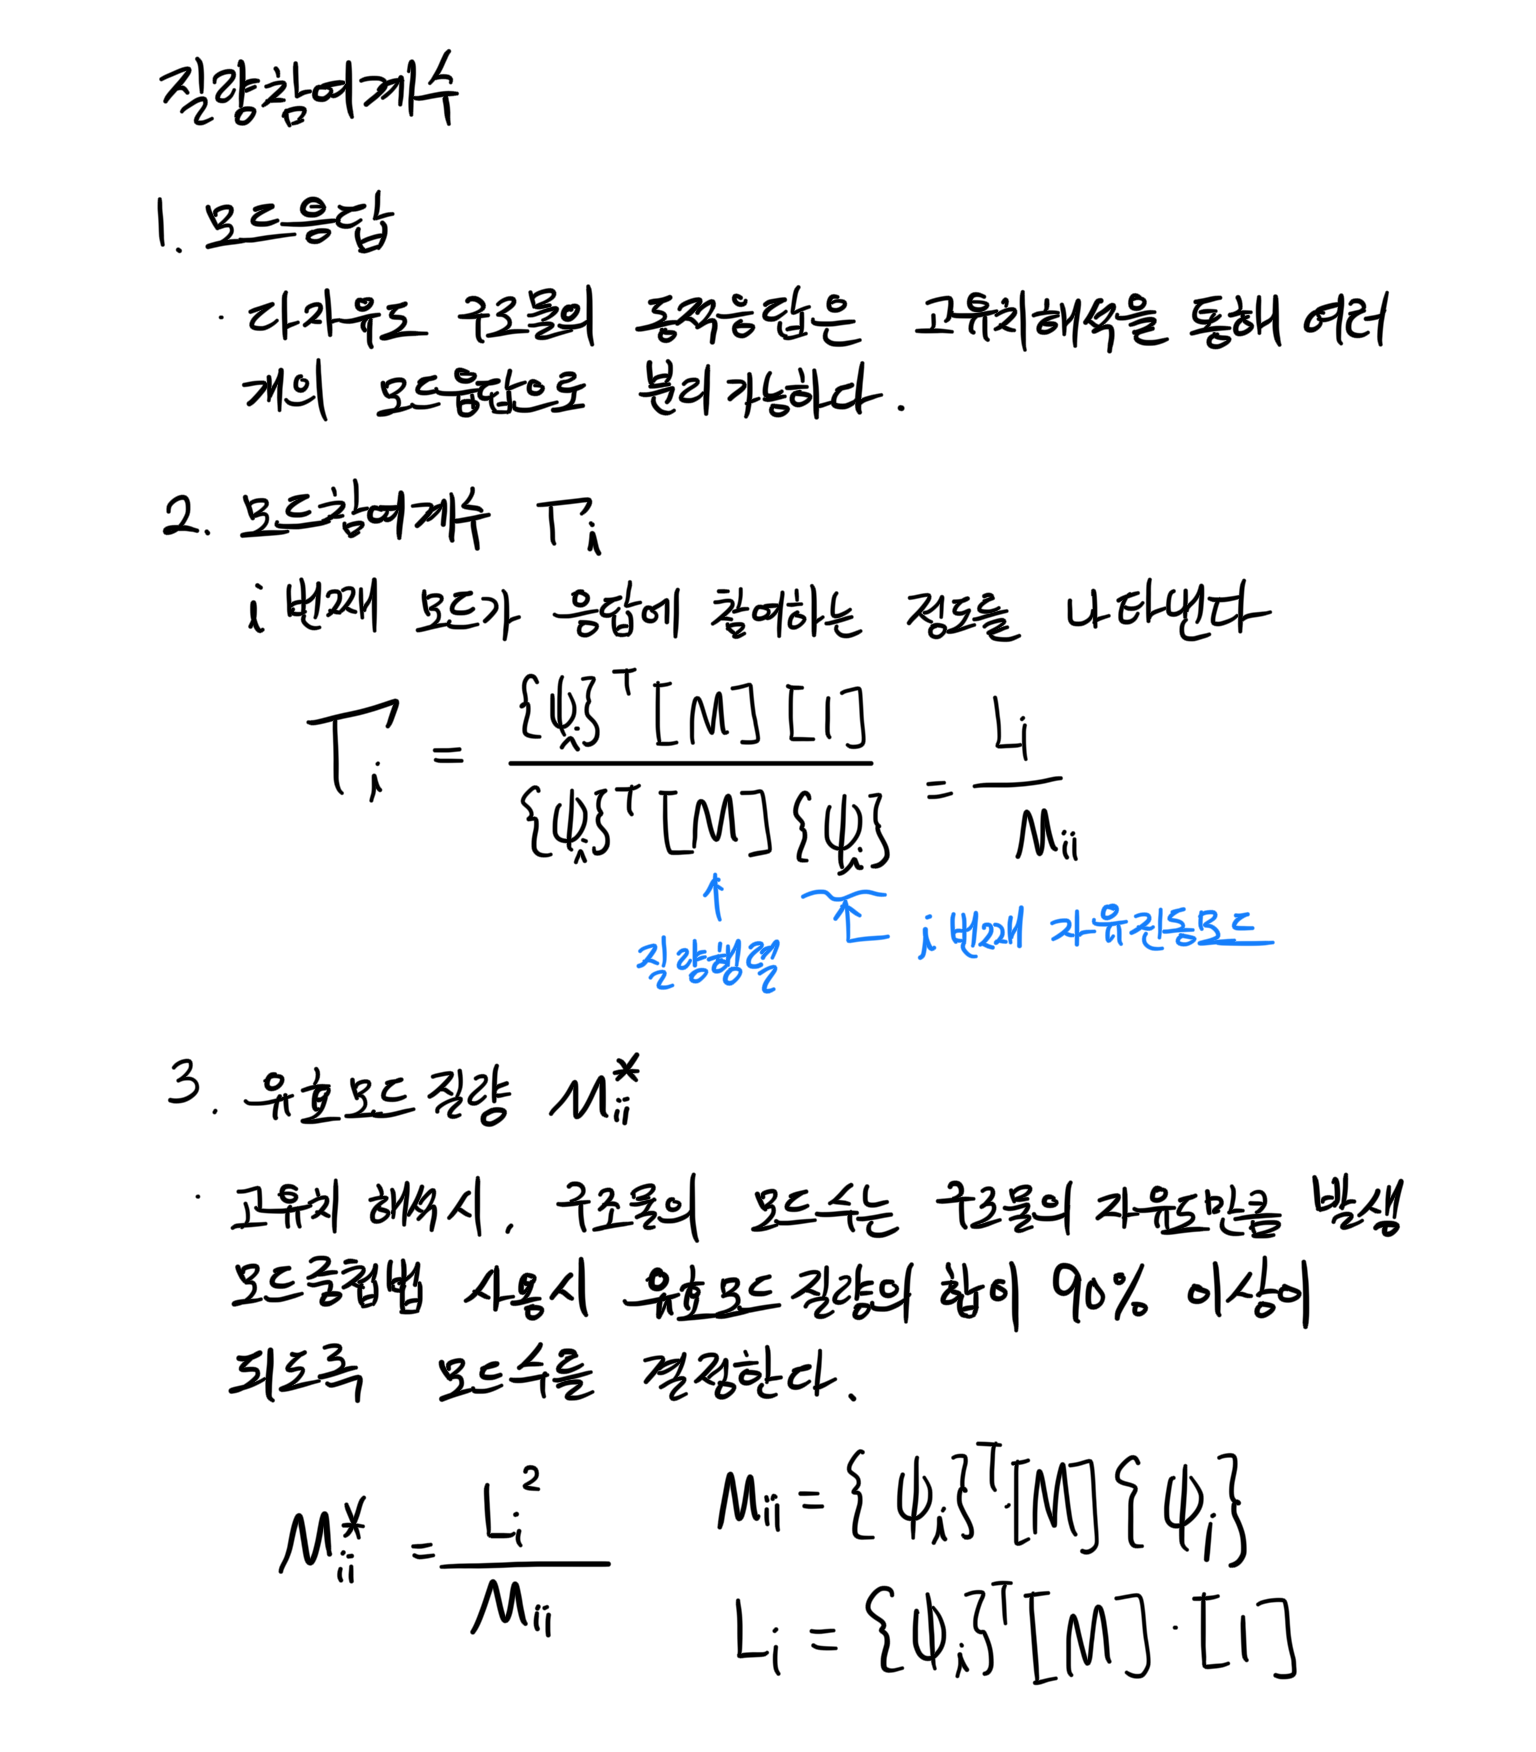 질량참여계수
1. 모드응답
· 다자유도 구조물의 동적응답은 고유치해석을 통해 여러
개의 모드응답으로 분리가능하다.
2. 모드참여계수 Γi
i 번째 모드가 응답에 참여하는 정도를 나타낸다
Γi = {ψi}^T [M] [1] / {ψi}^T [M] {ψi} = Li / Mii
질량행렬
i 번째 자유진동모드
3. 유효모드질량 Mii*
· 고유치 해석시, 구조물의 모드수는 구조물의 자유도만큼 발생
모드중첩법 사용시 유효모드질량의 합이 90% 이상이
되도록 모드수를 결정한다.
Mii* = Li² / Mii
Mii = {ψi}^T·[M] {ψi}
Li = {ψi}^T [M]·[1]